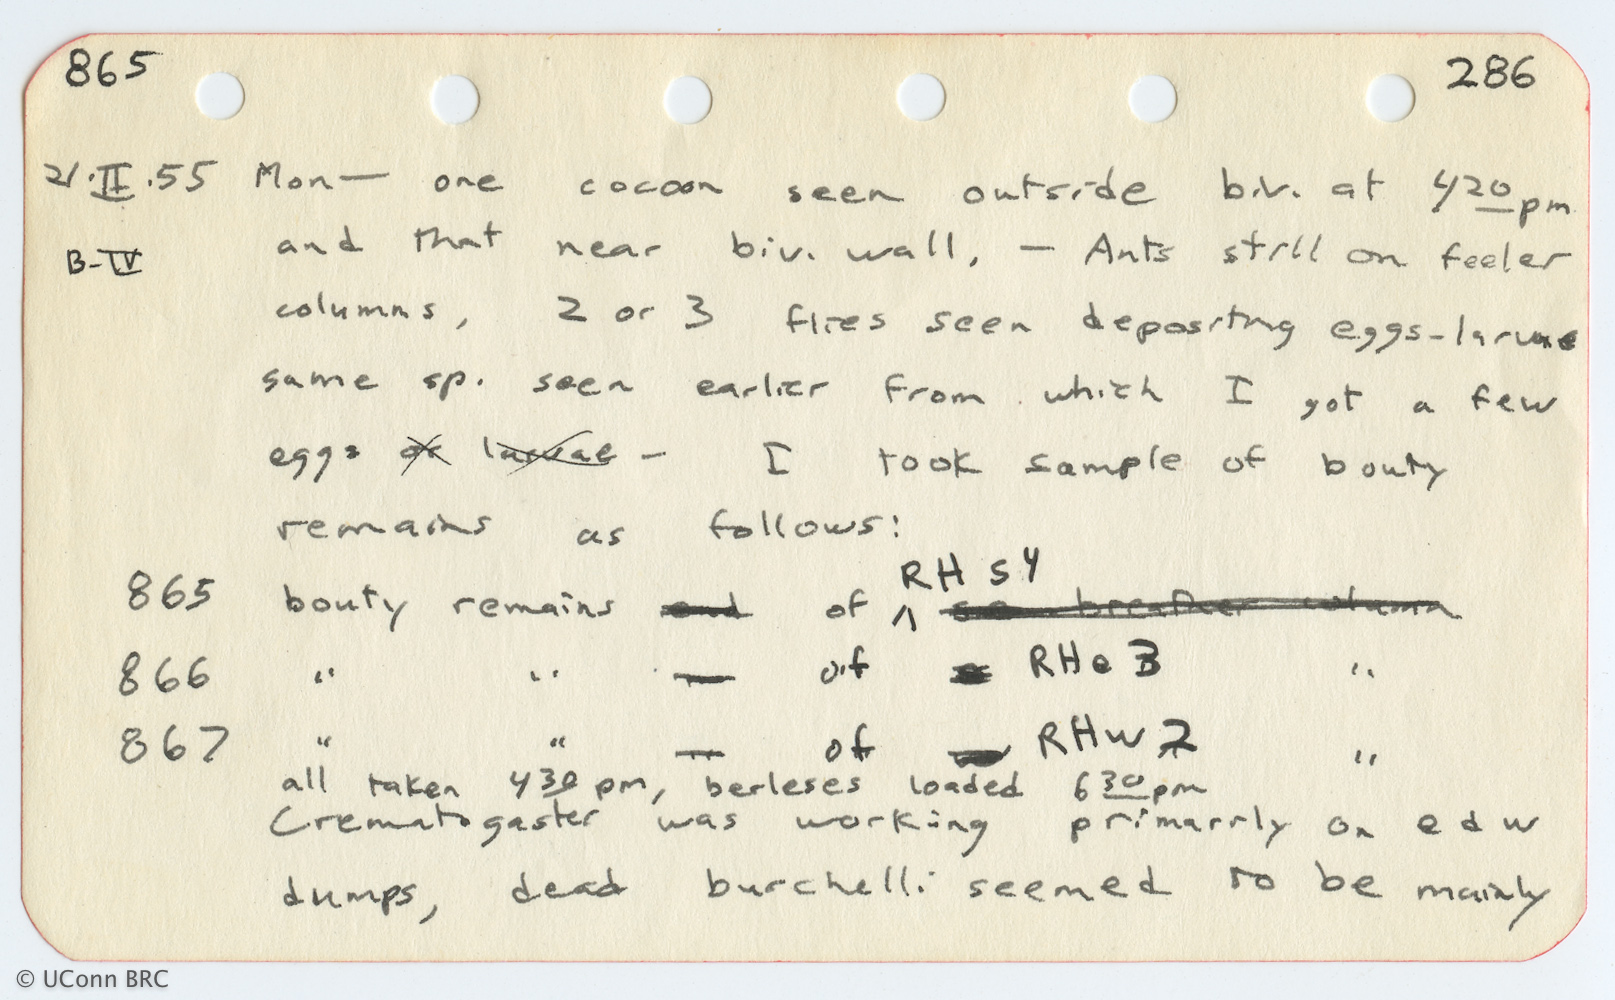 865 286
21.II.55 Mon— one cocoon seen outside biv. at 420 pm
B-IV and that near biv. wall, — Ants still on feeler
columns, 2 or 3 flies seen depositing eggs-larvae
same sp. seen earlier from which I got a few
eggs or larvae — I took sample of bouty
remains as follows:
RH s4
865 bouty remains and of ^ breather column
866 " " — of RHe 3 "
867 " " — of RHw 2 "
all taken 430 pm, berleses loaded 630 pm
Crematogaster was working primarily on e d w
dumps, dead burchelli seemed to be mainly
© UConn BRC